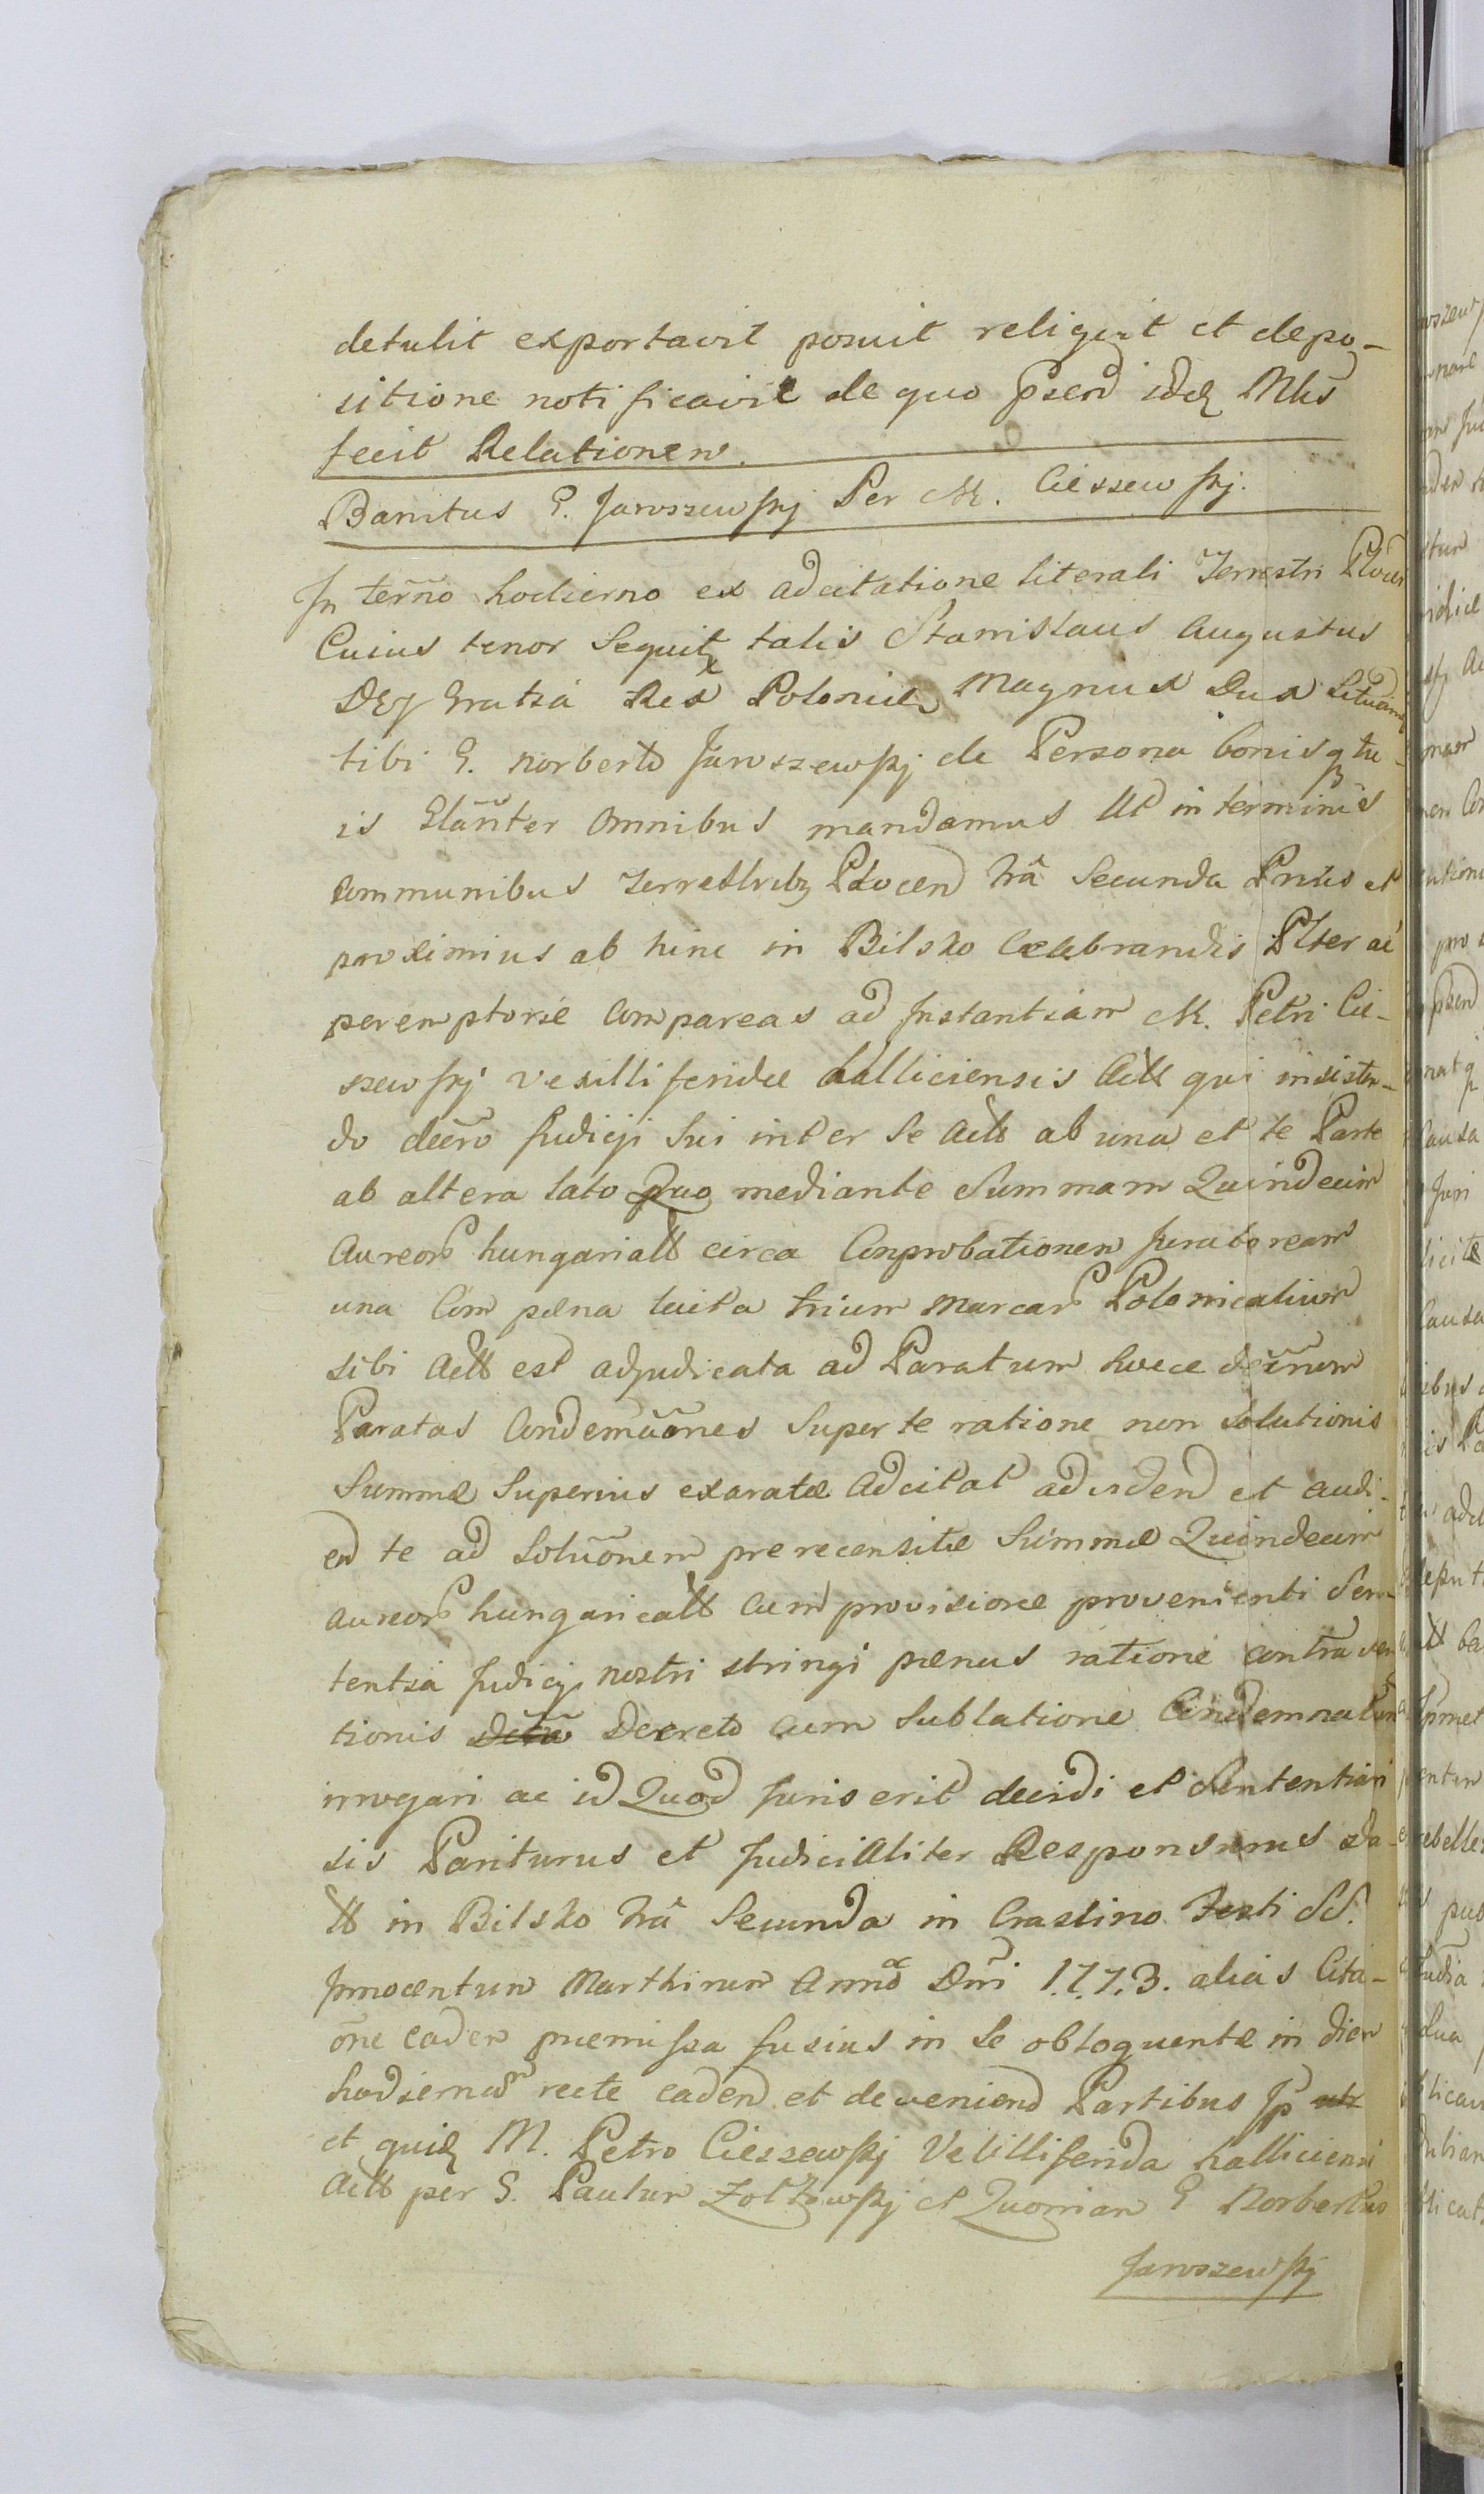 detulit exportavit posuit reliquit et depo-
sitione notificavit de quo psend idq Mlis
fecit Relationem.
Banitus G. Jaroszewskj Per M. Cieszewskj.
In termno hodierno ex adcitatione literali Terrestri Plocen
Cuius tenor Sequit talis Stanislaus Augustus
DEj Gratia Rex Poloniæ Magnus Dux Lituaniæ
tibi G. Norberto Jaroszewskj de Persona bonisq tu-
is Glanter Omnibus mandamus Ut in terminis
Communibus Terrestribq Plocen frâ Secunda Primo et
proximius ab hinc in Bilsko Celebrandis Plter ac
peremptorie Compareas ad Instantiam M. Petri Cie-
szewskj vexilliferidæ Halliciensis Actt qui insisten-
do decro Judicji Sui inter Se Actt ab una et te Parte
ab altera lato Quo mediante Summam Quindecim
Aureor hungariall circa Conprobationem Juratoream
una Cum pæna luita trium Marcar Polonicalium
sibi Actt est adjudicata ad Paratum hocce decrum
Paratas Condemnãones Super te ratione non Solutionis
Summæ Superius exaratæ Adcitat ad vidend et audi-
end te ad Solutõnem prerecensitæ Summæ Quindecim
aureor hungaricall cum provisione provenienti Sen-
tentia Judicji nostri stringi pænas ratione contraven
tionis Decreto cum Sublatione Condemnatum
irrogari ac id Quod Juris erit decidi et Sententiari
sis Pariturus et Judicialiter Responsurus Da-
tt in Bilsko frâ Secunda in Crastino Festi SS.
Innocentum Marthirum Anno Dni 1.7.7.3. alias Cita-
õne eadem præmissa fusius in Se obloquente in diem
hodiernum recte cadend et deveniend Partibus Ip
et quiq M. Petro Cieszewskj Vexilliferida halliciensi
Actt per G. Paulum Zoltowskj et Quoniam G Norbertus
Jaroszewskj